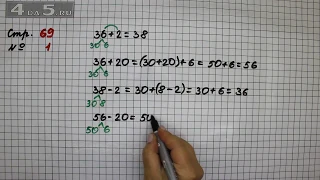 4da5.RU
Стр. 69
№ 1
36+2=38
30 6
36+20=(30+20)+6=50+6=56
30 6
38-2=30+(8-2)=30+6=36
30 8
56-20=50
50 6